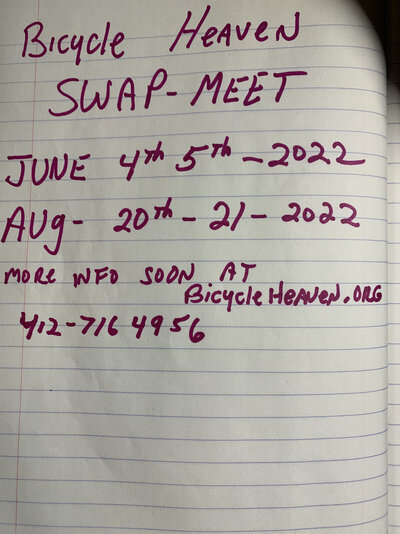 Bicycle Heaven
SWAP-MEET
JUNE 4th 5th - 2022
AUg- 20th - 21 - 2022
MORE INFO SOON AT
BicycleHeaven.ORG
412-716 4956